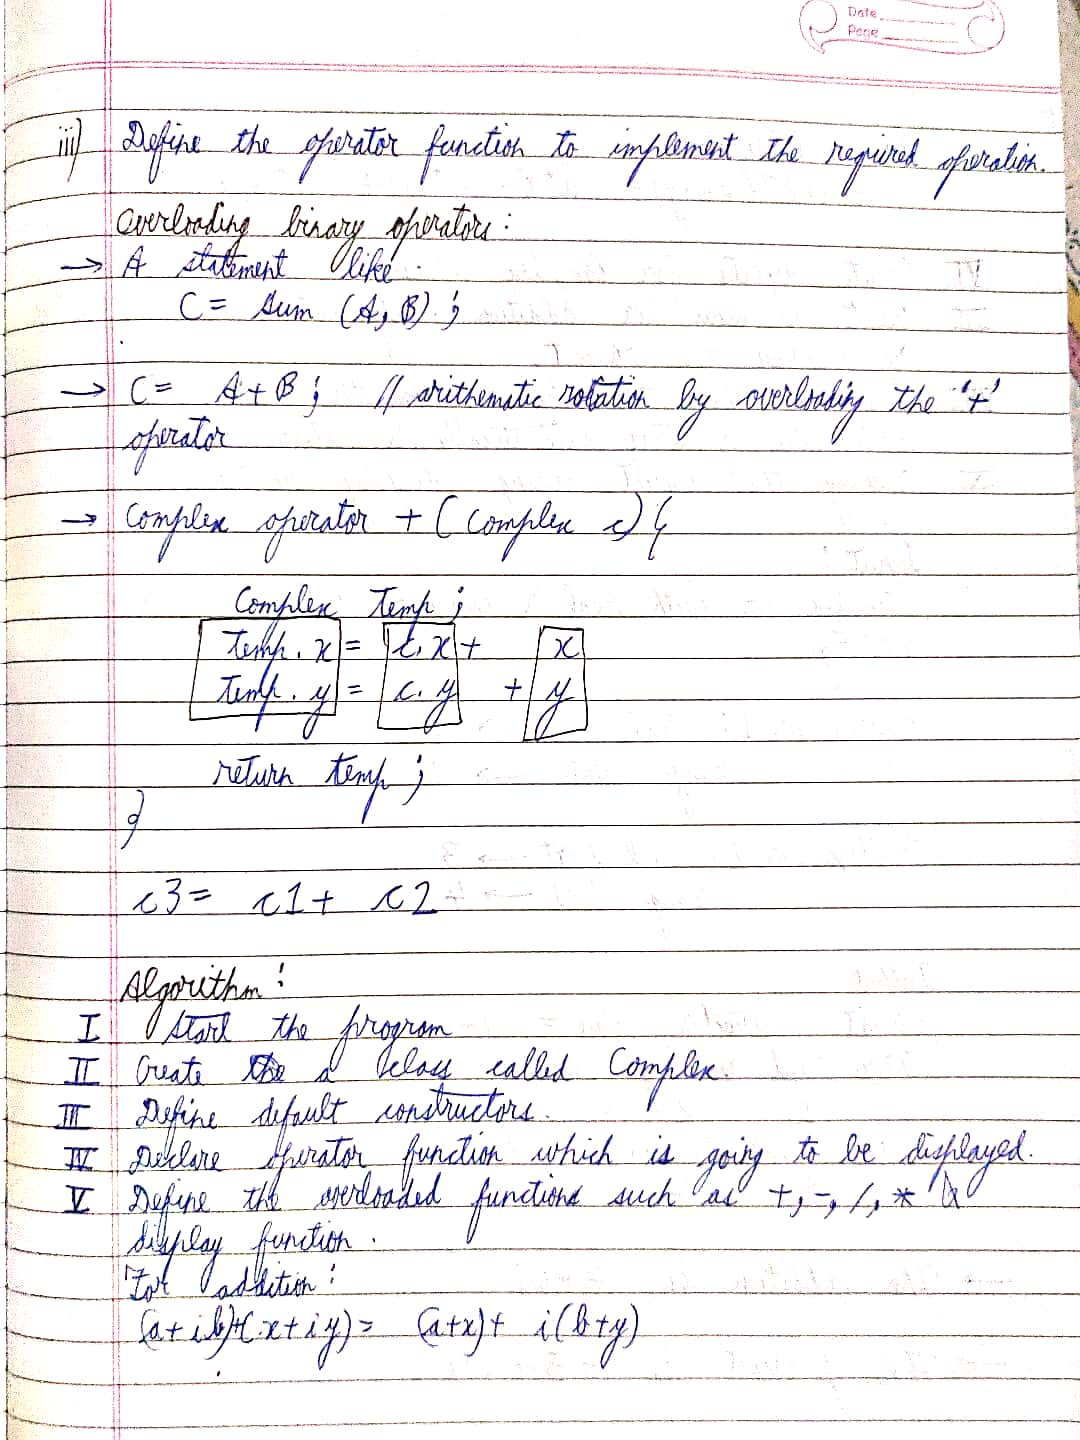 Date
Page
iii) Define the operator function to implement the required operation.
Overloading binary operators:
→ A statement like
C = Sum (A, B) ;
→ C = A + B ; // arithematic rotation by overloading the '+'
operator
→ Complex operator + ( Complex c) {
Complex Temp ;
temp. x = c. x + x
temp. y = c. y + y
return temp ;
}
c3 = c1 + c2
Algorithm :
I Start the program
II Create a class called Complex.
III Define default constructors.
IV Declare operator function which is going to be displayed.
V Define the overloaded functions such as +, -, /, * &
display function.
For addition :
(a + ib)+(x + iy) = (a+x) + i(b+y)